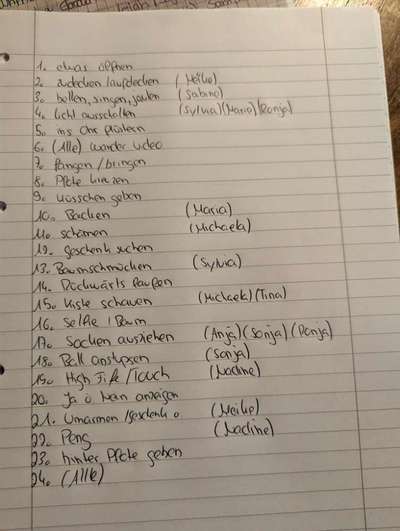 1. etwas öffnen
2. zudecken/aufdecken (Meike)
3. bellen, singen, jaulen (Sabine)
4. Licht ausschalten (Sylvia)(Mario)(Ronja)
5. ins Ohr flüstern
6. (Alle) wander video
7. fangen/bringen
8. Pfote kreuzen
9. Küsschen geben
10. Backen (Maria)
11. schämen (Michaela)
12. geschenk suchen
13. Baumschmücken (Sylvia)
14. Rückwärts laufen
15. Kiste schauen (Michaela)(Tina)
16. Selfie / Baum
17. Socken ausziehen (Anja)(Sonja)(Ronja)
18. Ball anstupsen (Sonja)
19. High Fife/Touch (Nadine)
20. Ja o Nein anzeigen
21. Umarmen /geschenk o (Meike)
22. Peng (Nadine)
23. hinter Pfote geben
24. (Alle)